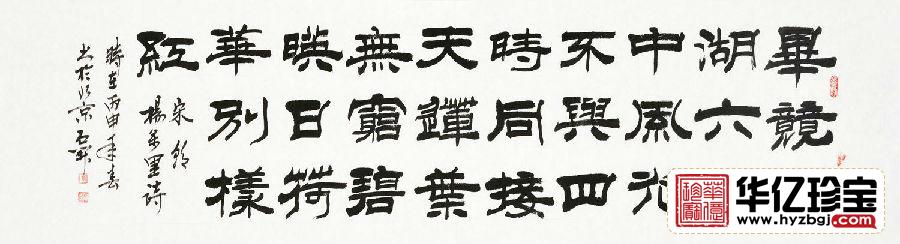 畢竟
湖六
中風光
不與四
時同接
天蓮葉
無窮碧
暎日荷
華別樣
紅
宋朝
楊万里詩
時在丙申年春
书於北京
華億珍寶
华亿珍宝
www.hyzbgj.com